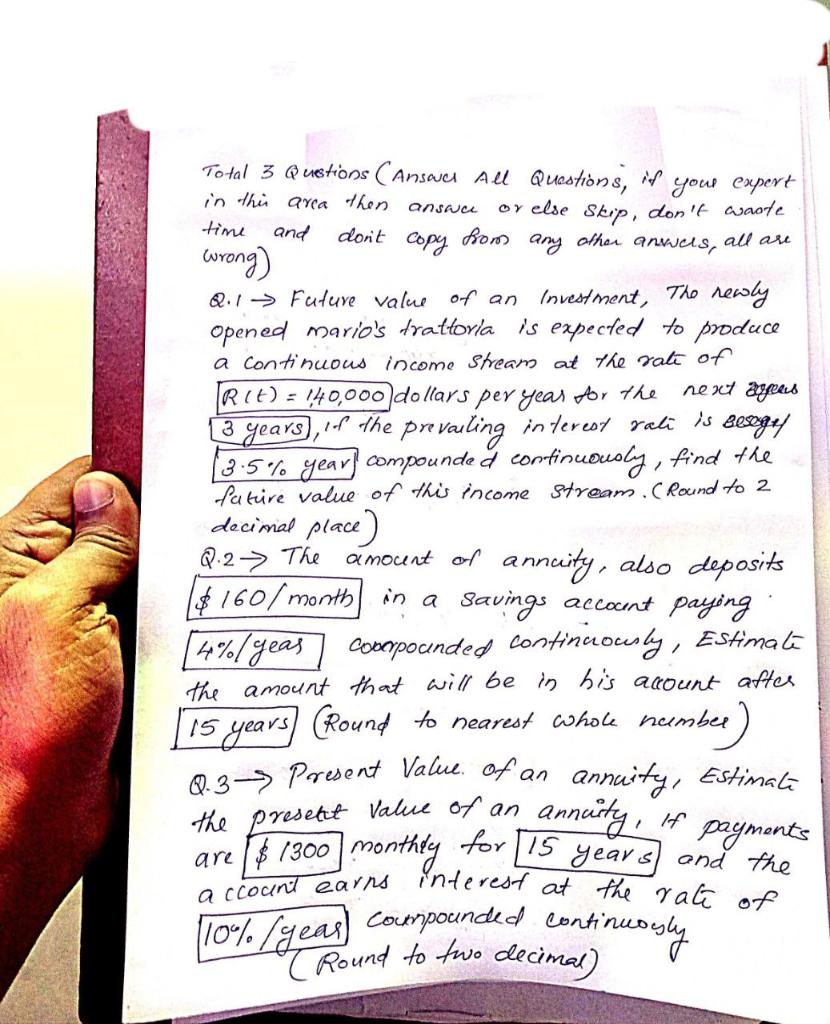 Total 3 Qustions (Answer All Questions, if your expert
in this area then answer or else Skip, don't waste
time and don't copy from any other answers, all are
wrong)
Q.1 → Future value of an Investment, The newly
opened mario's trattoria is expected to produce
a continuous income stream at the rate of
R(t) = 140,000 dollars per year for the next
3 years, if the prevailing interest rate is
3.5% year compounded continuously, find the
future value of this income stream. (Round to 2
decimal place)
Q.2 → The amount of annuity, also deposits
$ 160/month in a savings account paying
4%/year compounded continuously, Estimate
the amount that will be in his account after
15 years (Round to nearest whole number)
Q.3 → Present Value. of an annuity, Estimate
the present Value of an annuity, If payments
are $ 1300 monthly for 15 years and the
account earns interest at the rate of
10%/year compounded continuously
(Round to two decimal)